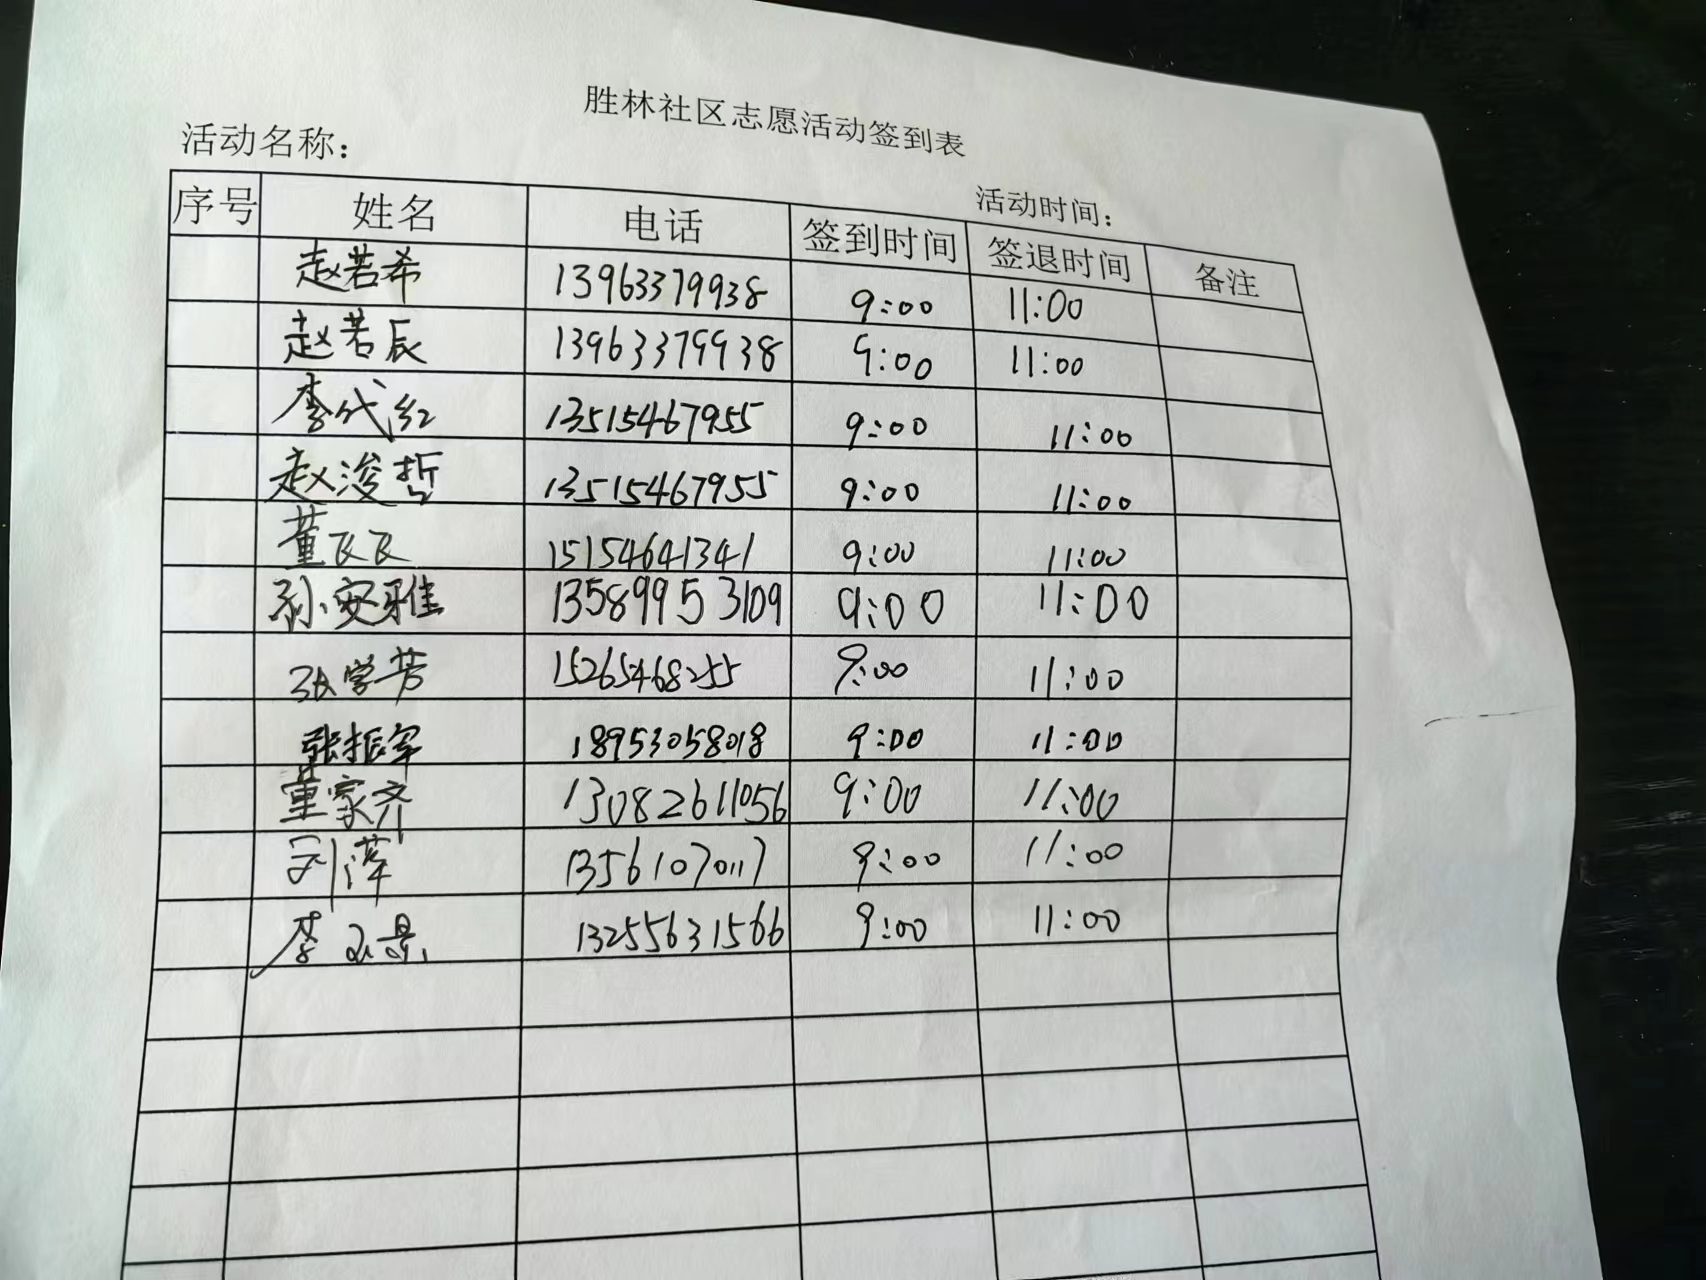 胜林社区志愿活动签到表
活动名称：
活动时间：
序号 姓名 电话 签到时间 签退时间 备注
赵若希 13963379938 9:00 11:00
赵若辰 13963379938 9:00 11:00
李代红 13515467955 9:00 11:00
赵浚哲 13515467955 9:00 11:00
董飞飞 15154641341 9:00 11:00
孙安雅 13589953109 9:00 11:00
张学芳 15265468255 9:00 11:00
张振军 18953058018 9:00 11:00
董家齐 13082611056 9:00 11:00
刘萍 13561070117 9:00 11:00
李 景 13255631566 9:00 11:00